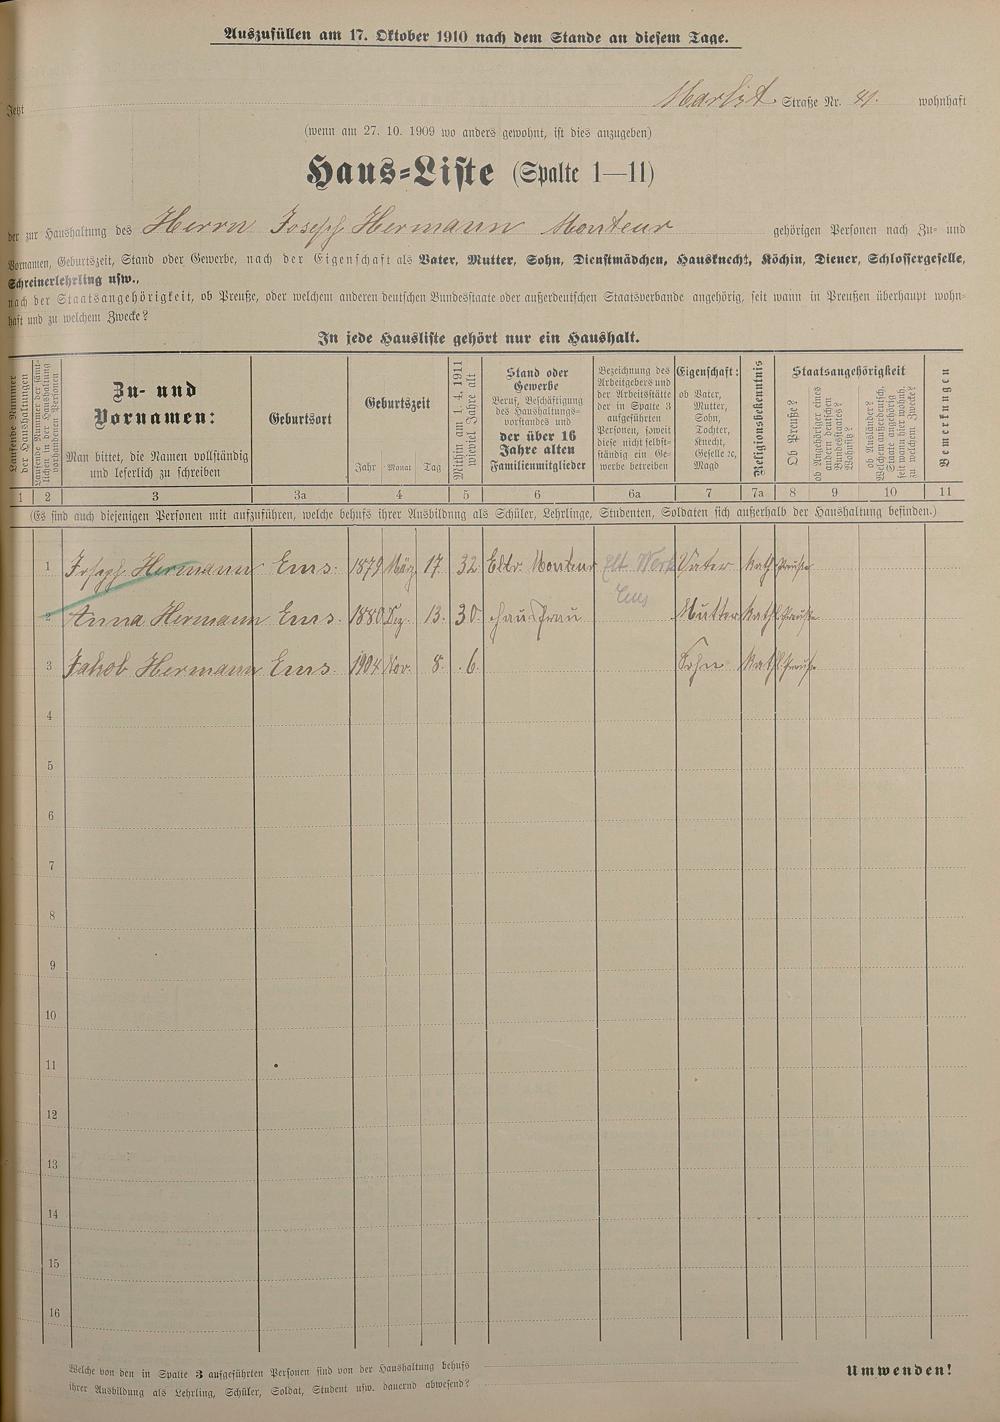 Auszufüllen am 17. Oktober 1910 nach dem Stande an diesem Tage.
Jetzt Markt Straße Nr. 41. wohnhaft
(wenn am 27. 10. 1909 wo anders gewohnt, ist dies anzugeben)
Haus=Liste (Spalte 1—11)
der zur Haushaltung des Herrn Joseph Hermann Monteur gehörigen Personen nach Zu- und
Vornamen, Geburtszeit, Stand oder Gewerbe, nach der Eigenschaft als Vater, Mutter, Sohn, Dienstmädchen, Hausknecht, Köchin, Diener, Schlossergeselle,
Schreinerlehrling usw.,
nach der Staatsangehörigkeit, ob Preuße, oder welchem anderen deutschen Bundesstaate oder außerdeutschen Staatsverbande angehörig, seit wann in Preußen überhaupt wohn-
haft und zu welchem Zwecke?
In jede Hausliste gehört nur ein Haushalt.
Laufende Nummer der Haushaltungen
Laufende Nummer der sämt-
lichen in der Haushaltung
vorhandenen Personen
Zu- und
Vornamen:
Man bittet, die Namen vollständig
und leserlich zu schreiben
Geburtsort
Geburtszeit
Jahr Monat Tag
Mithin am 1. 4. 1911
wieviel Jahre alt
Stand oder
Gewerbe
Beruf, Beschäftigung
des Haushaltungs-
vorstandes und
der über 16
Jahre alten
Familienmitglieder
Bezeichnung des
Arbeitgebers und
der Arbeitsstätte
der in Spalte 3
aufgeführten
Personen, soweit
diese nicht selbst-
ständig ein Ge-
werbe betreiben
Eigenschaft:
ob Vater,
Mutter,
Sohn,
Tochter,
Knecht,
Geselle 2c,
Magd
Religionsbekenntnis
Staatsangehörigkeit
Ob Preuße?
ob Angehöriger eines
andern deutschen
Bundesstaates?
Wohnsitz?
ob Ausländer?
Welchem außerdeutsch.
Staate angehörig
seit wann hier wohnh.
zu welchem Zwecke?
Bemerkungen
1 2 3 3a 4 5 6 6a 7 7a 8 9 10 11
(Es sind auch diejenigen Personen mit aufzuführen, welche behufs ihrer Ausbildung als Schüler, Lehrlinge, Studenten, Soldaten sich außerhalb der Haushaltung befinden.)
1 Joseph Hermann Ems. 1879 März 17 32 Elktr. Monteur Elt. Werk Vater Kath Preuße
Ems
2 Anna Hermann Ems. 1880 Dez. 13. 30. Hausfrau Mutter Kath Preuße
3 Jakob Hermann Ems. 1904 Nov. 8. 6. Sohn Kath Preuße
4
5
6
7
8
9
10
11
12
13
14
15
16
Welche von den in Spalte 3 aufgeführten Personen sind von der Haushaltung behufs
ihrer Ausbildung als Lehrling, Schüler, Soldat, Student usw. dauernd abwesend?
Umwenden!